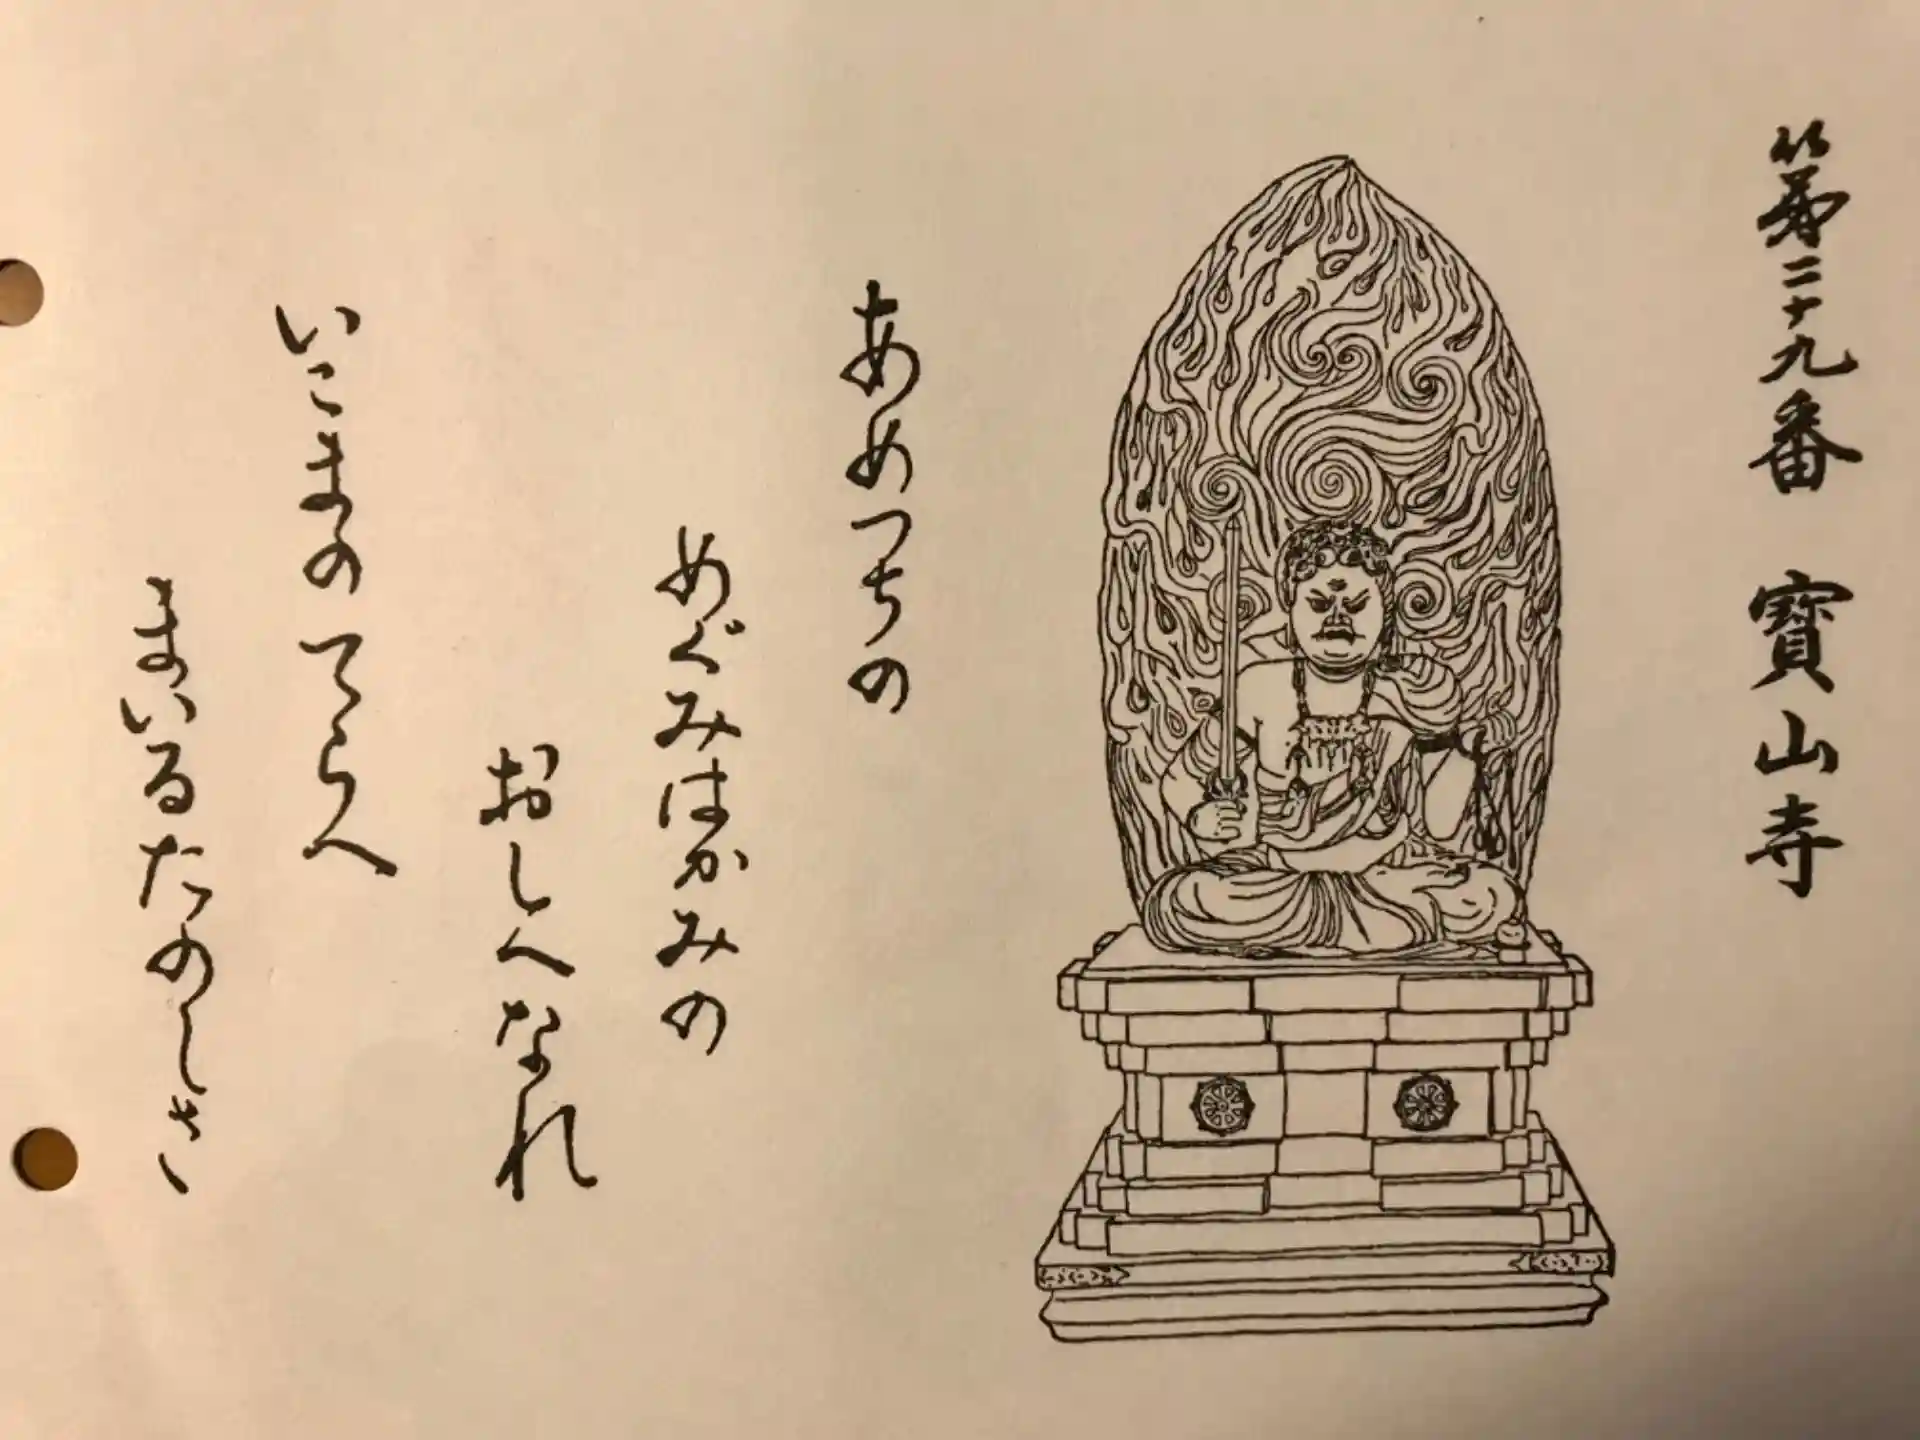 第二十九番　寶山寺
あめつちの
めぐみはかみの
おしへなれ
いこまのてらへ
まいるたのしさ